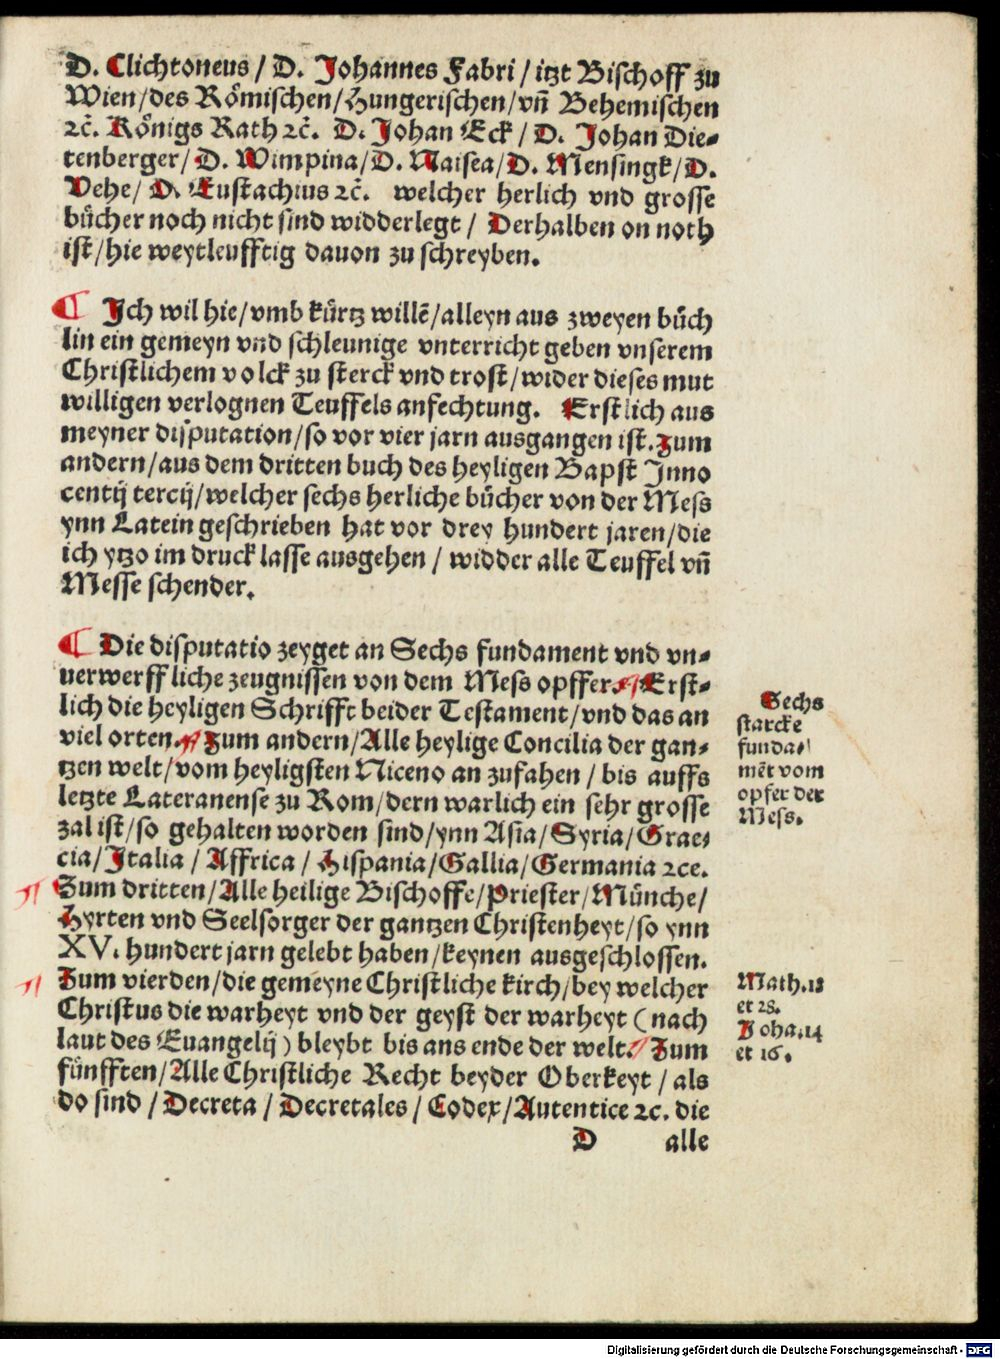 D. Clichtoneus / D. Johannes Fabri / itzt Bischoff zu
Wien/des Römischen/Hungerischen/vñ Behemischen
ꝛc̃. Königs Rath ꝛc̃. D. Johan Eck / D. Johan Die⸗
tenberger/ D. Wimpina/D. Maisea/D. Mensingk/D.
Vehe/ D. Eustachius ꝛc̃. welcher herlich vnd grosse
bücher noch nicht sind widderlegt / Derhalben on noth
ist/hie weytleufftig dauon zu schreyben.
¶ Ich wil hie/vmb kürtz willẽ/alleyn aus zweyen büch
lin ein gemeyn vnd schleunige vnterricht geben vnserem
Christlichem volck zu sterck vnd trost/wider dieses mut
willigen verlognen Teuffels anfechtung. Erstlich aus
meyner disputation/so vor vier jarn ausgangen ist. Zum
andern/aus dem dritten buch des heyligen Bapst Inno
centij tercij/welcher sechs herliche bücher von der Mess
ynn Latein geschrieben hat vor drey hundert jaren/die
ich ytzo im druck lasse ausgehen / widder alle Teuffel vñ
Messe schender.
¶ Die disputatio zeyget an Sechs fundament vnd vn⸗
uerwerffliche zeugnissen von dem Mess opffer. Erst⸗
lich die heyligen Schrifft beider Testament/vnd das an
viel orten. Zum andern/Alle heylige Concilia der gan⸗
tzen welt/vom heyligsten Niceno an zufahen / bis auffs
letzte Lateranense zu Rom/dern warlich ein sehr grosse
zal ist/so gehalten worden sind/ynn Asia/Syria/Grae⸗
cia/Italia / Affrica / Hispania/Gallia/Germania ꝛce.
Zum dritten/Alle heilige Bischoffe/Priester/Münche/
Hyrten vnd Seelsorger der gantzen Christenheyt/so ynn
XV. hundert jarn gelebt haben/keynen ausgeschlossen.
Zum vierden/die gemeyne Christliche kirch/bey welcher
Christus die warheyt vnd der geyst der warheyt (nach
laut des Euangelij) bleybt bis ans ende der welt. Zum
fünfften/Alle Christliche Recht beyder Oberkeyt / als
do sind / Decreta / Decretales / Codex/Autentice ꝛc. die
D alle
Sechs
starcke
funda⸗
mẽt vom
opfer der
Mess.
Math.18
et 28.
Joha.14
et 16.
Digitalisierung gefördert durch die Deutsche Forschungsgemeinschaft - DFG